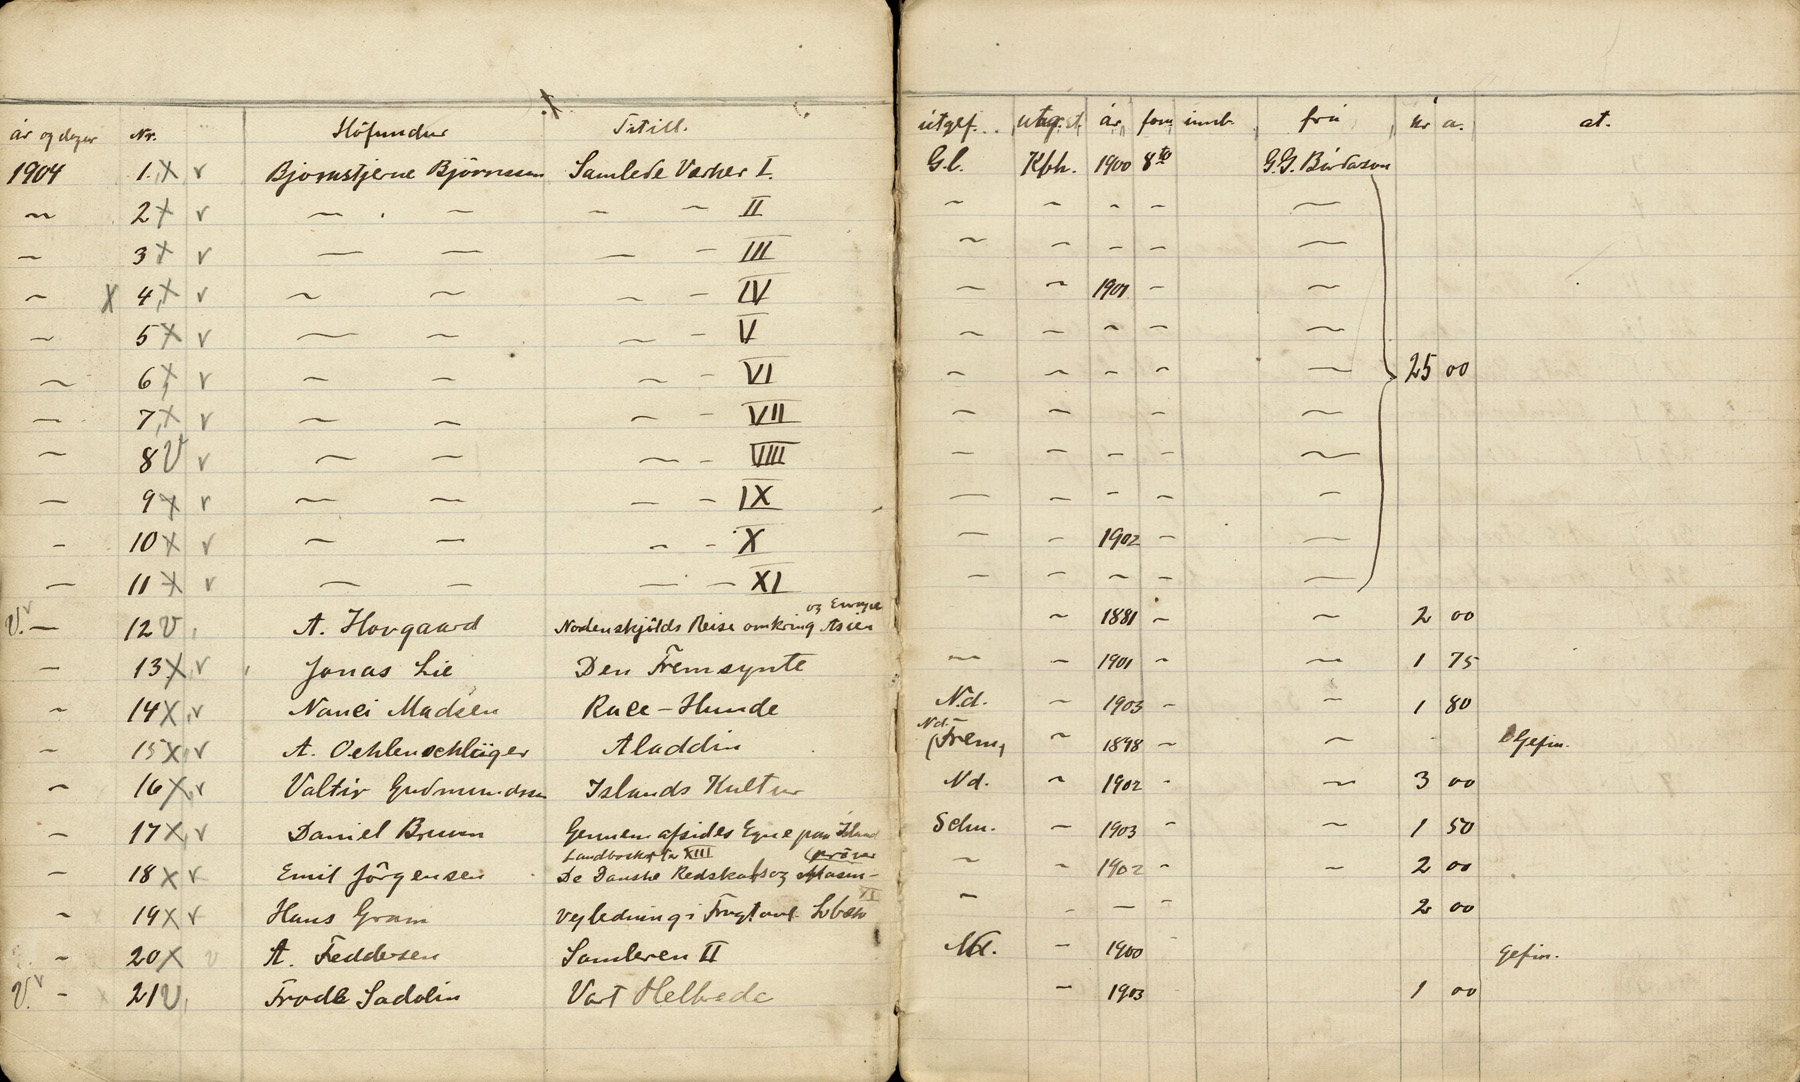 ár og dagur Nr. Höfundur Titill. útgef. útg.st. ár form innb. frá kr a. at.
1904 1. X v Bjornstjerne Björnsson Samlede Værker I. G.b. Kbh. 1900 8to G.G. Bárdason
— 2 X v — — — — II — — — — —
— 3 X v — — — — III — — — — —
— X 4 X v — — — — IV — — 1901 — —
— 5 X v — — — — V — — — — —
— 6 X v — — — — VI — — — — — 25 00
— 7 X v — — — — VII — — — —
— 8 V v — — — — VIII — — — — —
— 9 X v — — — — IX — — — — —
— 10 X v — — — — X — — 1902 — —
— 11 X v — — — — XI — — — — —
og Europa
V. v — 12 V A. Hovgaard Nordenskjölds Reise omkring Asien — 1881 — — 2 00
— 13 X v Jonas Lie Den Fremsynte — — 1901 — — 1 75
— 14 X v Nanci Madsen Race-Hunde N.d. — 1903 — — 1 80
Nd. —
— 15 X v A. Oehlenschläger Aladdin (Frem) — 1898 — — Gefin.
— 16 X v Valtir Gudmundsson Islands Kultur Nd. — 1902 — — 3 00
— 17 X v Daniel Bruun Gennem afsides Egne paa Island Schu. — 1903 — — 1 50
XIII
— 18 X v Emil Jörgensen De Danske Redskabs og Masin- — — 1902 — — 2 00
XI
— 19 X v Hans Gram Vejledning i Frugtavl — — — — 2 00
— 20 X v A. Feddersen Samleren II Nd. — 1900 gefin.
V. v — 21 V Frode Sadolin Vort Helbrede — 1903 1 00